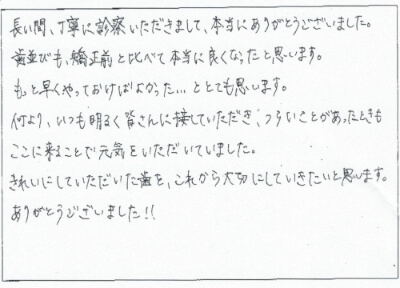 長い間、丁寧に診察いただきまして、本当にありがとうございました。
歯並びも、矯正前と比べて本当に良くなったと思います。
もっと早くやっておけばよかった…ととても思います。
何より、いつも明るく皆さんに接していただき、つらいことがあったときも
ここに来ることで元気をいただいていました。
きれいにしていただいた歯を、これから大切にしていきたいと思います。
ありがとうございました!!